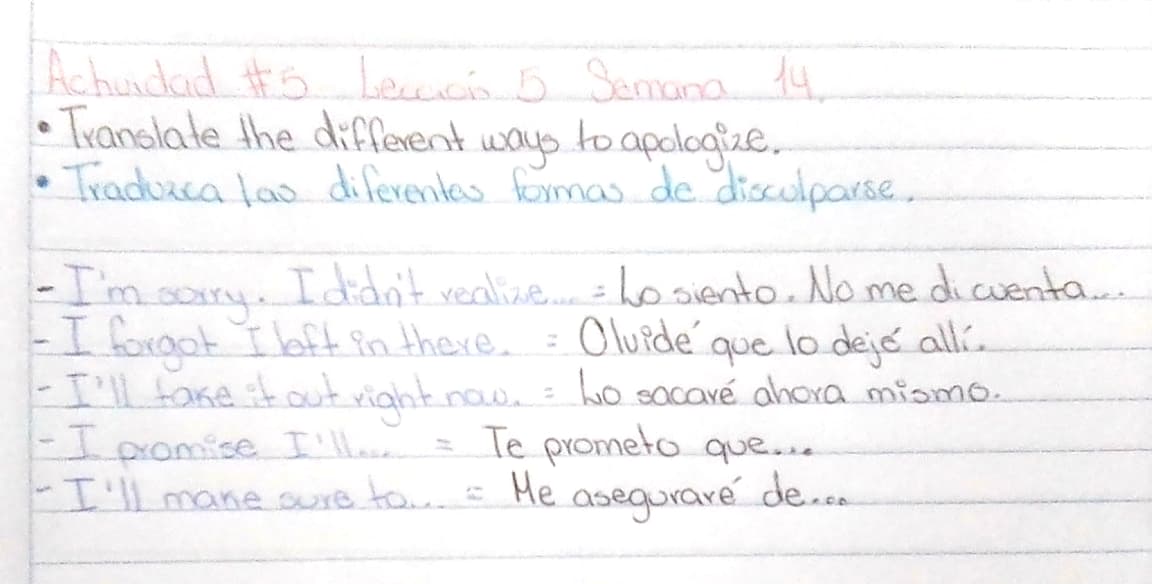 Actividad #5 Lección 5 Semana 14.
• Translate the different ways to apologize.
• Traduzca las diferentes formas de disculparse.
- I'm sorry. I didn't realize... = Lo siento. No me di cuenta...
- I forgot I left in there. = Olvidé que lo dejé allí.
- I'll take it out right now. = Lo sacaré ahora mismo.
- I promise I'll... = Te prometo que...
- I'll make sure to... = Me aseguraré de...